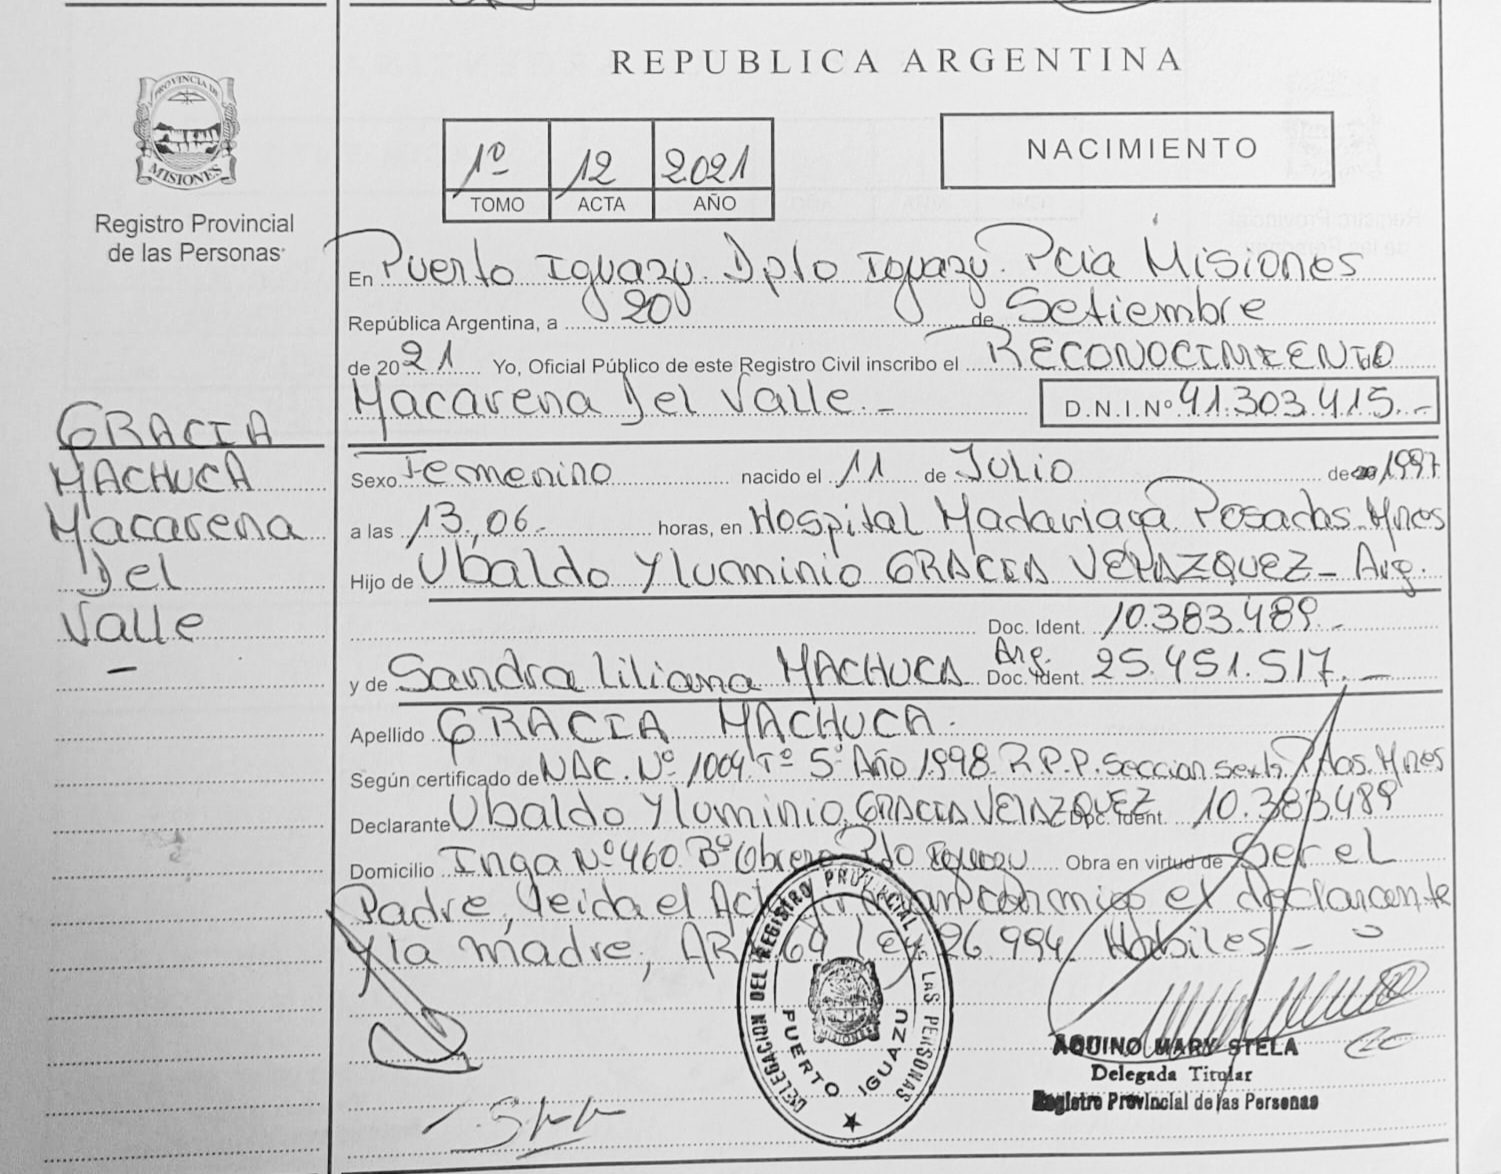 REPUBLICA ARGENTINA
PROVINCIA DE
MISIONES
Registro Provincial
de las Personas
1º 12 2021
TOMO ACTA AÑO
NACIMIENTO
En Puerto Iguazu. Dpto Iguazu. Pcia Misiones
República Argentina, a 20 de Setiembre
de 2021 Yo, Oficial Público de este Registro Civil inscribo el RECONOCIMIENTO
Macarena Del Valle.- D.N.I.Nº 41.303.415.-
GRACIA
MACHUCA
Macarena
Del
Valle
-
Sexo Femenino nacido el 11 de Julio de 1997
a las 13,06.- horas, en Hospital Madariaga Posadas Mnes
Hijo de Ubaldo Yluminio GRACIA VELAZQUEZ - Arg.
Doc. Ident. 10.383.489.-
y de Sandra Liliana MACHUCA Arg. Doc. Ident. 25.451.517.-
Apellido GRACIA MACHUCA.
Según certificado de NAC. Nº 1004 Tº 5º Año 1998. R.P.P. Seccion Sexta Pdas. Mnes
Declarante Ubaldo Yluminio GRACIA VELAZQUEZ Doc. Ident. 10.383.489
Domicilio Inga Nº 460 Bº Obrero Pto Iguazu Obra en virtud de Ser el
Padre, Leida el Acta conmigo el declarante
y la madre, ART 64 LEY 26.994. Habiles -
DELEGACION DEL REGISTRO PROVINCIAL DE LAS PERSONAS
PUERTO IGUAZU
MISIONES
AQUINO MARY STELA
Delegada Titular
Registro Provincial de las Personas